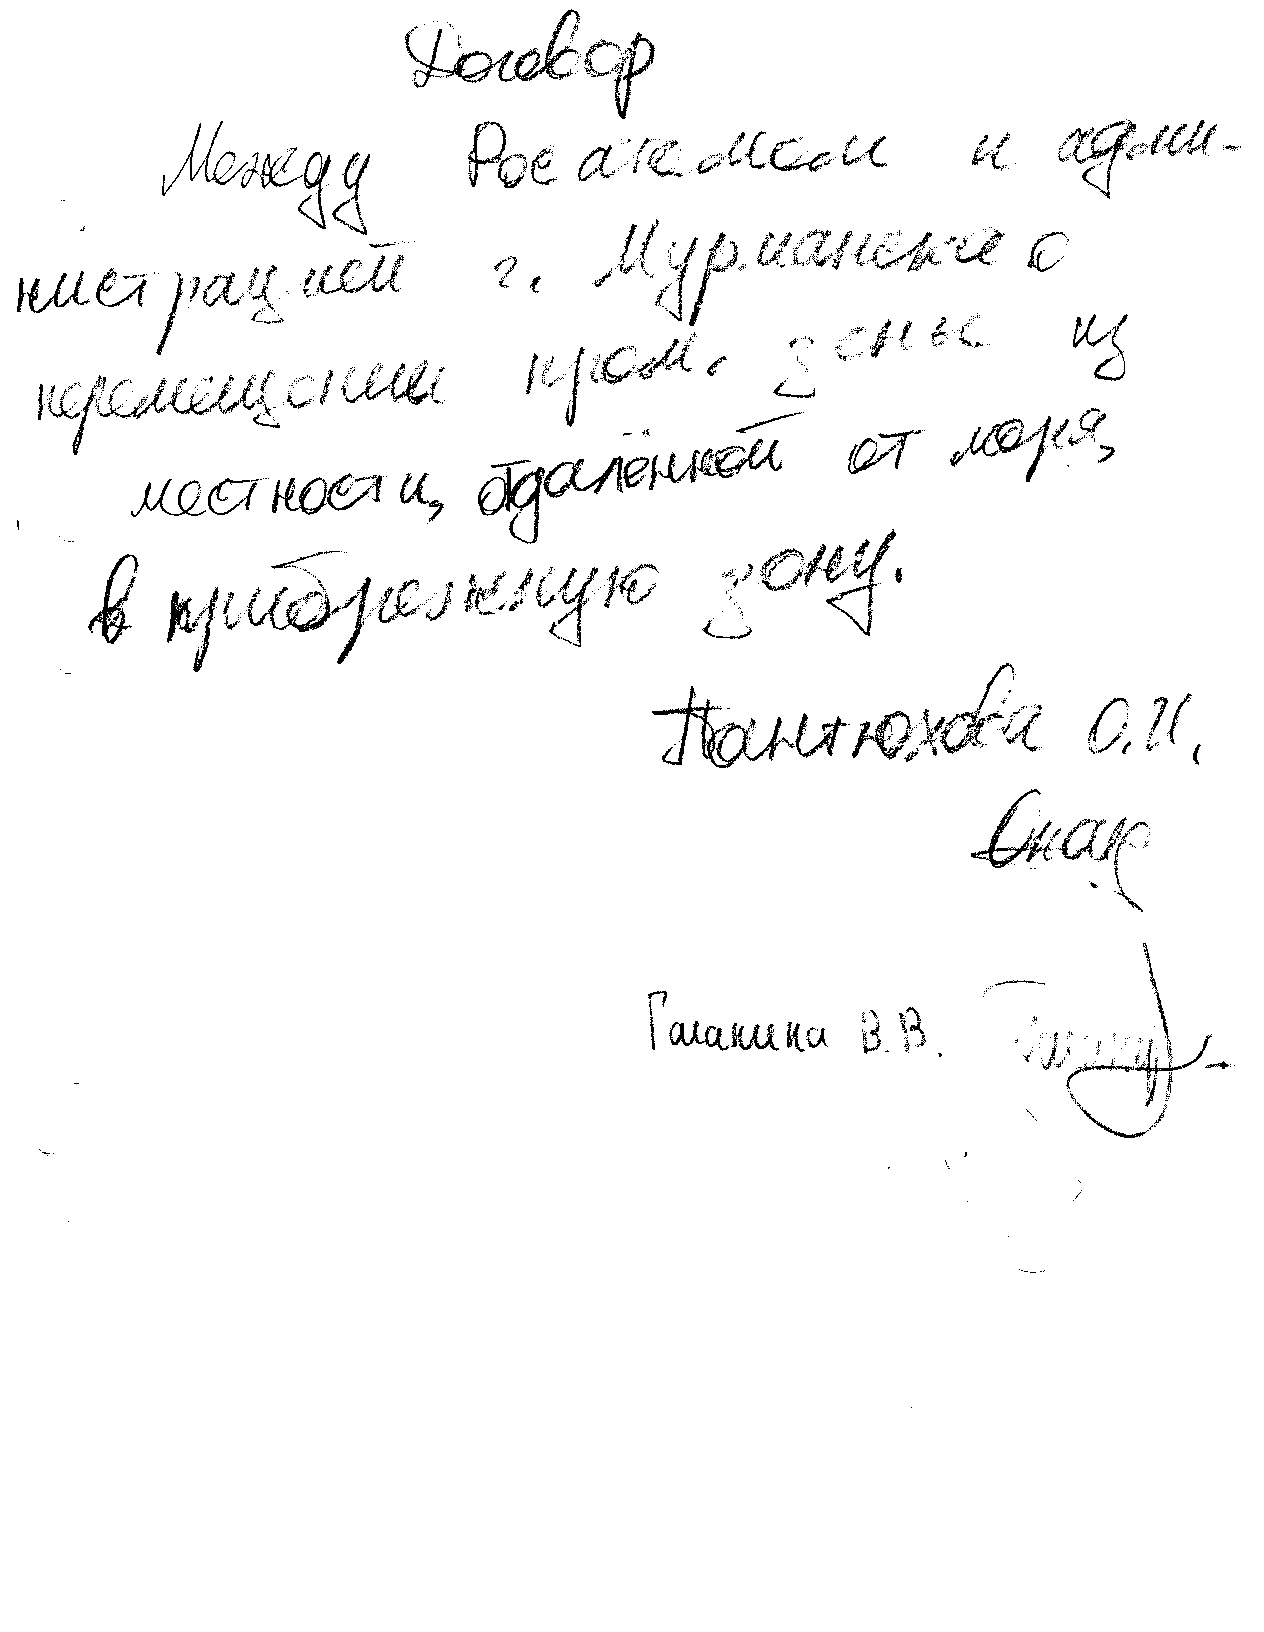 Договор
Между Росатомом и адми-
нистрацией г. Мурманска о
перемещении пром. зоны из
местности, отдалённой от моря,
в прибрежную зону.
Пантюхова О.И.
Галанина В.В.